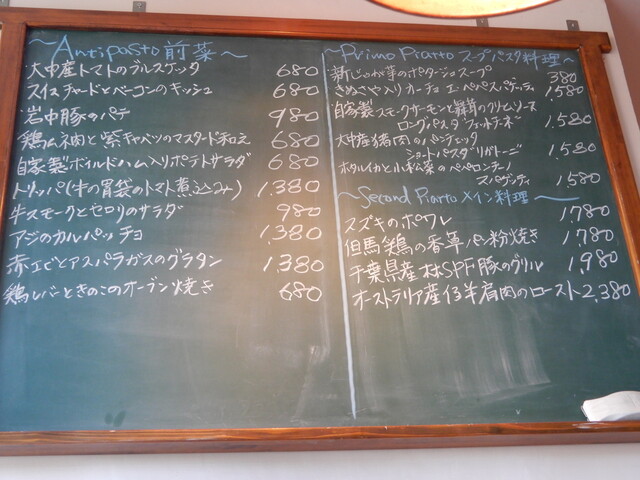 ～Antipasto 前菜～
大中産トマトのブルスケッタ 680
スイスチャードとベーコンのキッシュ 680
岩中豚のパテ 980
鶏ムネ肉と紫キャベツのマスタード和え 680
自家製ボイルドハム入りポテトサラダ 680
トリッパ(牛の胃袋のトマト煮込み) 1,380
牛スモークとセロリのサラダ 980
アジのカルパッチョ 1,380
赤エビとアスパラガスのグラタン 1,380
鶏レバーときのこのオーブン焼き 680
～Primo Piatto スープパスタ料理～
新じゃが芋のポタージュスープ 380
きぬさや入りカーチョ エ ペペスパゲッティ 1,580
自家製スモークサーモンと舞茸のクリームソース
ロングパスタ フェットチーネ 1,580
大中産猪肉のパンチェッタ
ショートパスタ リガトーニ 1,580
ホタルイカと小松菜のペペロンチーノ
スパゲッティ 1,580
～Second Piatto メイン料理～
スズキのポワレ 1,780
但馬鶏の香草パン粉焼き 1,780
千葉県産林SPF豚のグリル 1,980
オーストラリア産仔羊肩肉のロースト 2,380